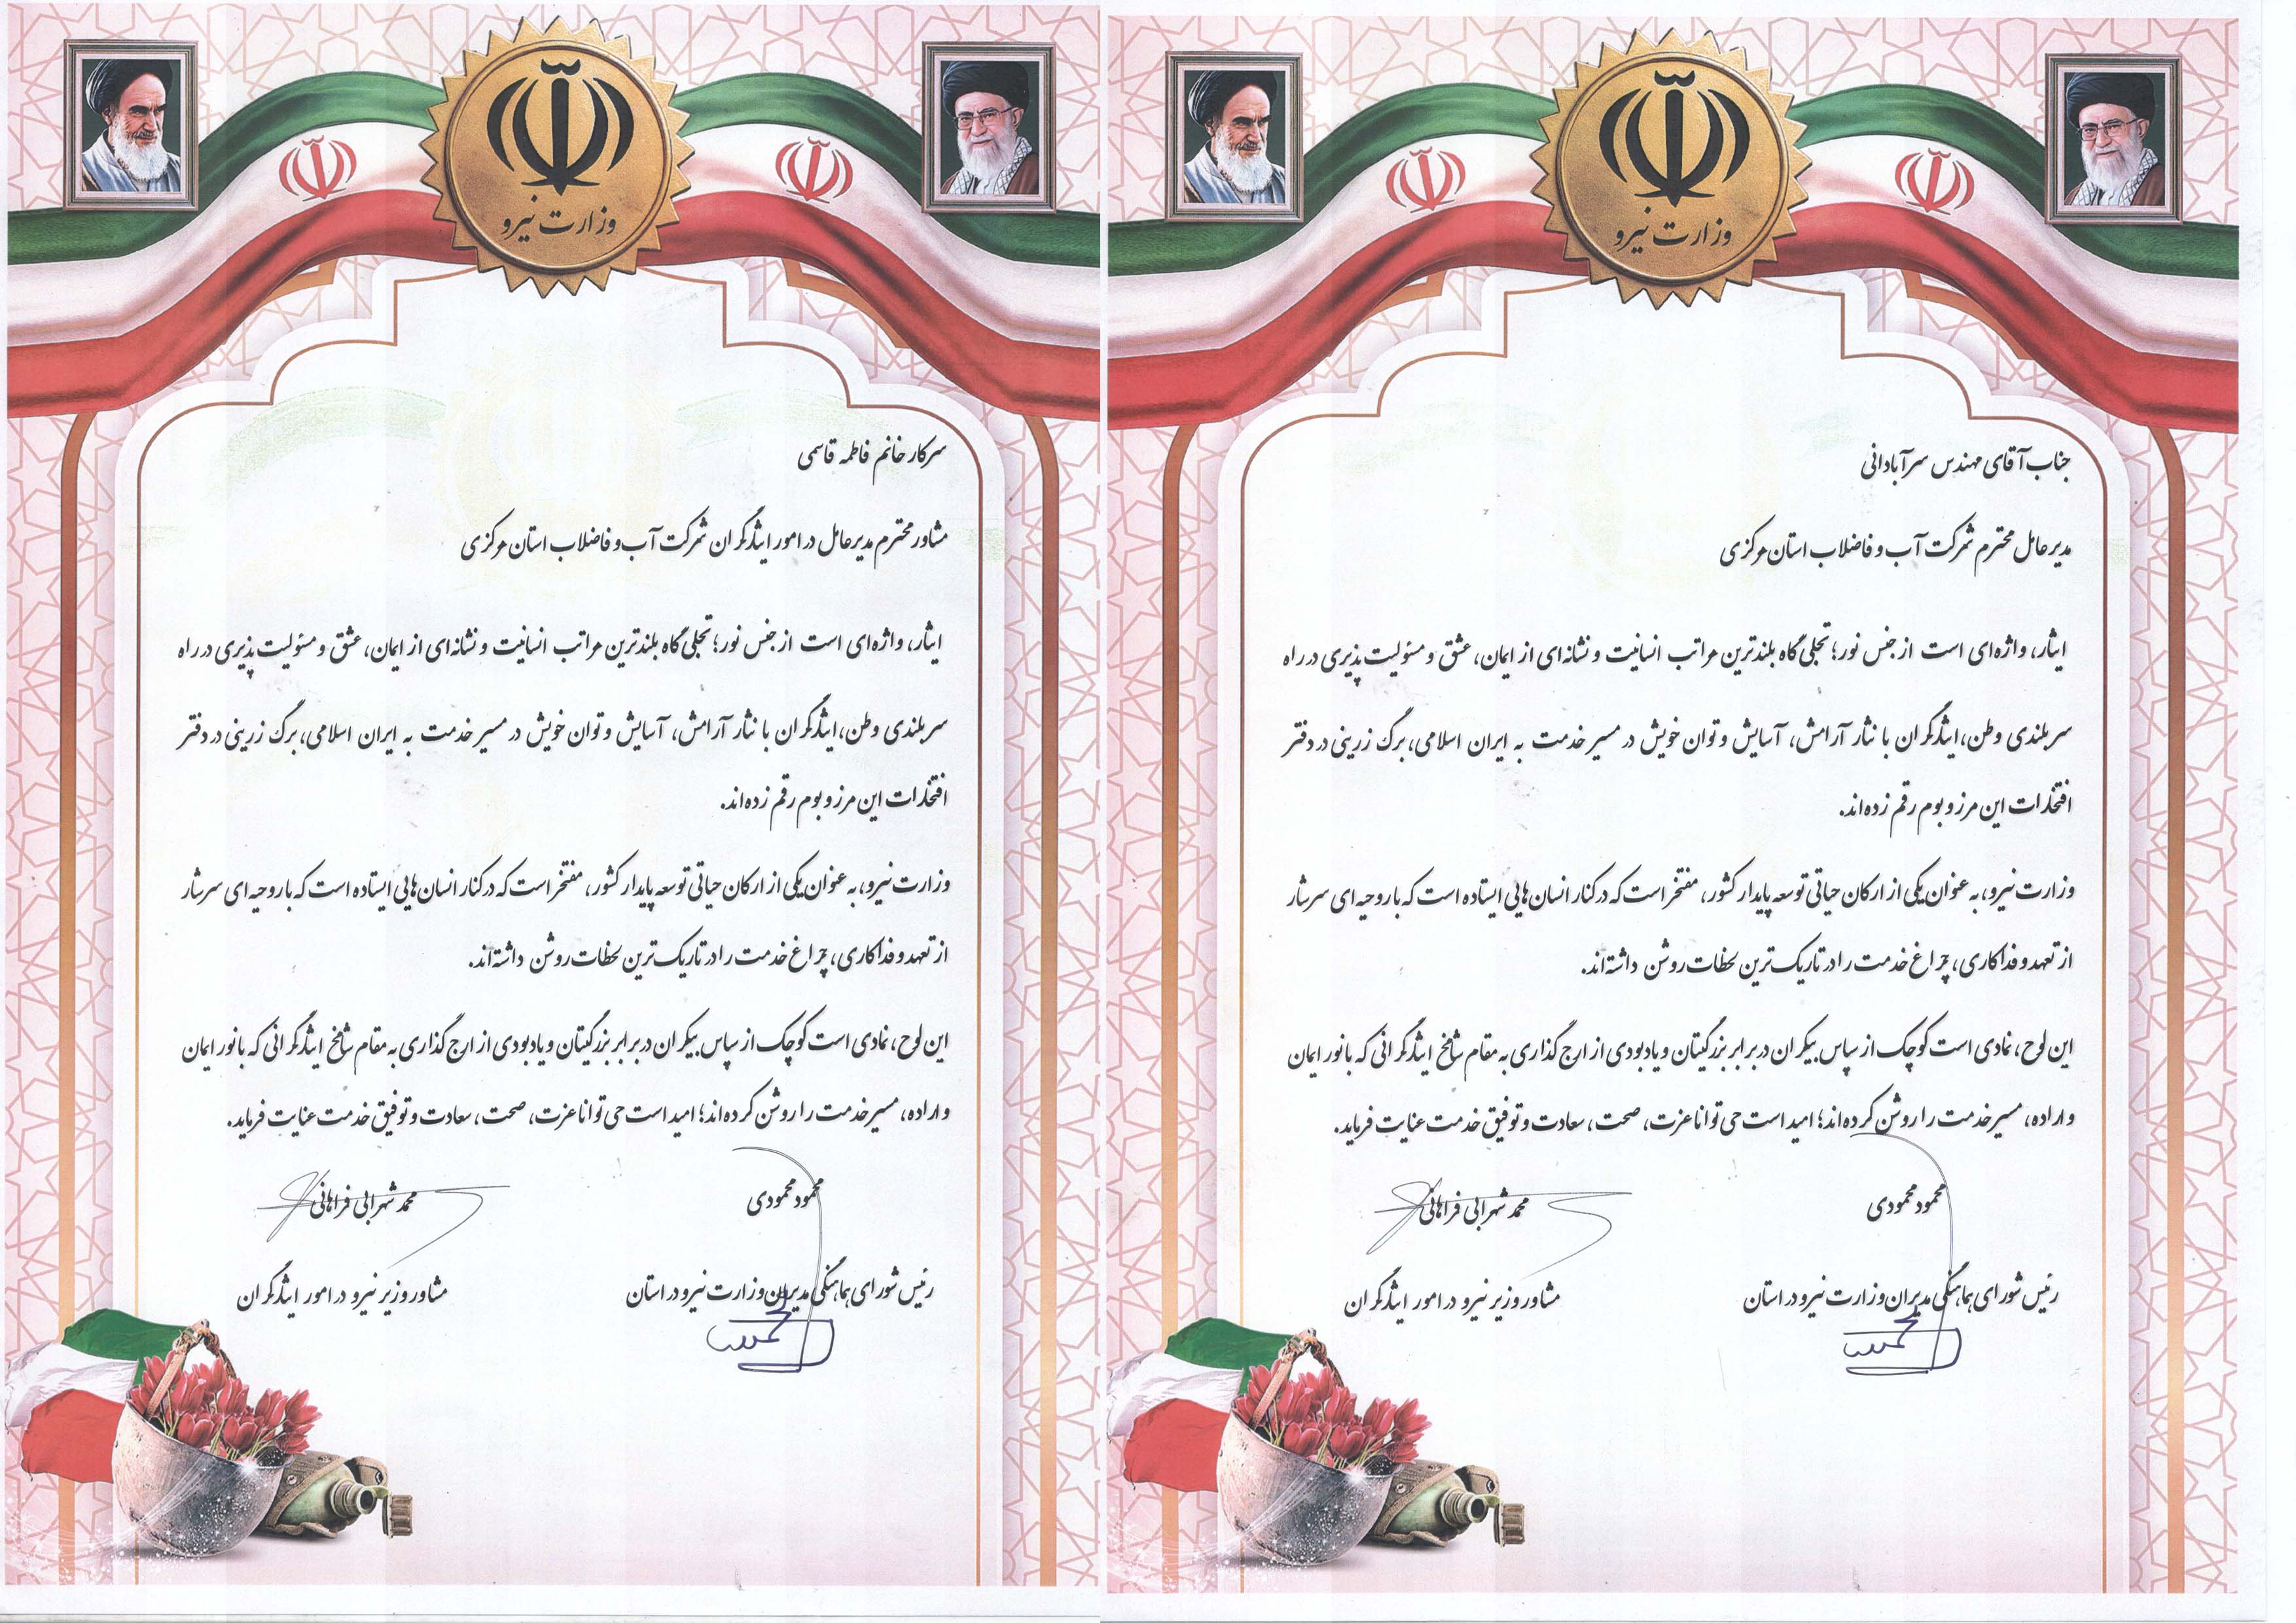 وزارت نیرو
سرکار خانم فاطمه قاسمی
مشاور محترم مدیرعامل در امور ایثارگران شرکت آب و فاضلاب استان مرکزی
ایثار، واژه‌ای است از جنس نور؛ تجلی گاه بلندترین مراتب انسانیت و نشانه‌ای از ایمان، عشق و مسئولیت پذیری در راه
سربلندی وطن، ایثارگران با نثار آرامش، آسایش و توان خویش در مسیر خدمت به ایران اسلامی، برگ زرینی در دفتر
افتخارات این مرز و بوم رقم زده‌اند.
وزارت نیرو، به عنوان یکی از ارکان حیاتی توسعه پایدار کشور، مفتخر است که در کنار انسان‌هایی ایستاده است که با روحیه ای سرشار
از تعهد و فداکاری، چراغ خدمت را در تاریک‌ترین لحظات روشن داشته‌اند.
این لوح، نمادی است کوچک از سپاس بیکران در برابر بزرگیتان و یادبودی از ارج گذاری به مقام شامخ ایثارگرانی که با نور ایمان
و اراده، مسیر خدمت را روشن کرده‌اند؛ امید است حی توانا عزت، صحت، سعادت و توفیق خدمت عنایت فرماید.
محمود محمودی
محمد شهرابی فراهانی
رئیس شورای هماهنگی مدیران وزارت نیرو در استان
مشاور وزیر نیرو در امور ایثارگران
وزارت نیرو
جناب آقای مهندس سرآبادانی
مدیرعامل محترم شرکت آب و فاضلاب استان مرکزی
ایثار، واژه‌ای است از جنس نور؛ تجلی گاه بلندترین مراتب انسانیت و نشانه‌ای از ایمان، عشق و مسئولیت پذیری در راه
سربلندی وطن، ایثارگران با نثار آرامش، آسایش و توان خویش در مسیر خدمت به ایران اسلامی، برگ زرینی در دفتر
افتخارات این مرز و بوم رقم زده‌اند.
وزارت نیرو، به عنوان یکی از ارکان حیاتی توسعه پایدار کشور، مفتخر است که در کنار انسان‌هایی ایستاده است که با روحیه ای سرشار
از تعهد و فداکاری، چراغ خدمت را در تاریک‌ترین لحظات روشن داشته‌اند.
این لوح، نمادی است کوچک از سپاس بیکران در برابر بزرگیتان و یادبودی از ارج گذاری به مقام شامخ ایثارگرانی که با نور ایمان
و اراده، مسیر خدمت را روشن کرده‌اند؛ امید است حی توانا عزت، صحت، سعادت و توفیق خدمت عنایت فرماید.
محمود محمودی
محمد شهرابی فراهانی
رئیس شورای هماهنگی مدیران وزارت نیرو در استان
مشاور وزیر نیرو در امور ایثارگران